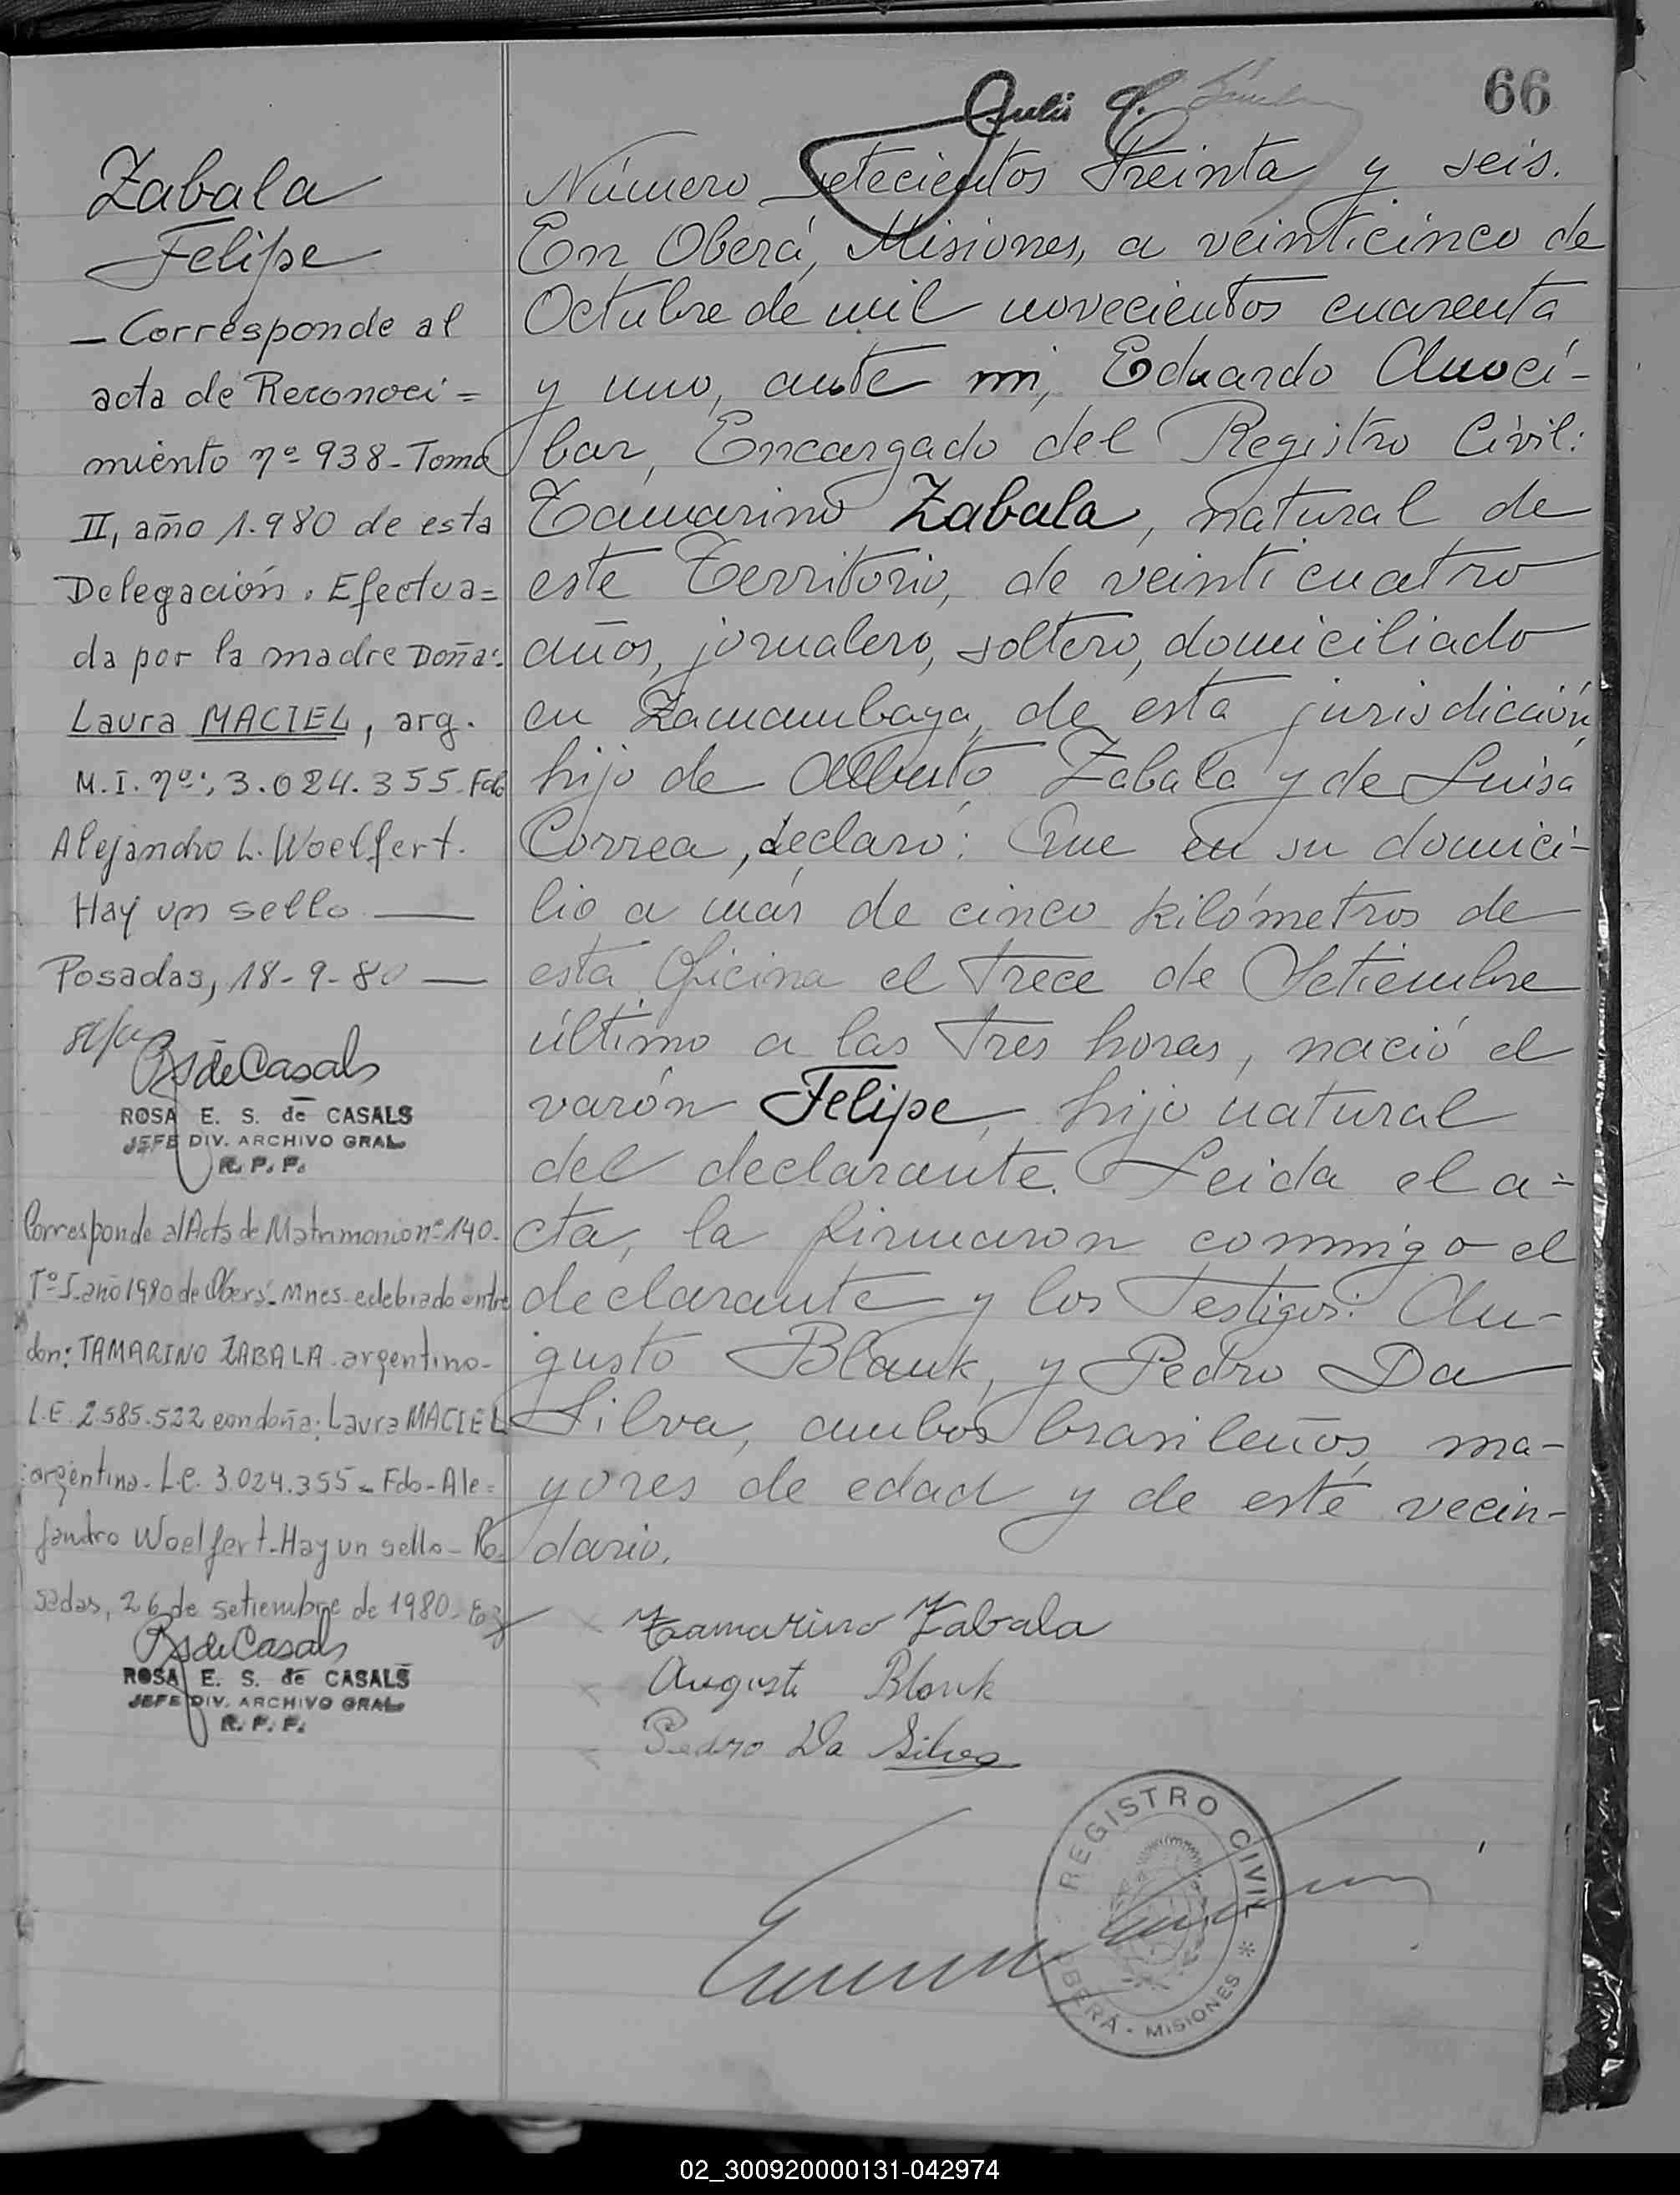 66
Zabala
Felipe
— Corresponde al
acta de Reconoci=
miento nº 938 - Tomo
II, año 1.980 de esta
Delegación. Efectua=
da por la madre Doña:
Laura MACIEL, arg.
M.I. nº: 3.024.355 - Fdo
Alejandro L. Woelfert.
Hay un sello —
Posadas, 18-9-80 —
RSdeCasals
ROSA E. S. de CASALS
JEFE DIV. ARCHIVO GRAL
R. P. P.
Corresponde al Acta de Matrimonio nº 140.
Tº I - año 1980 de Oberá - Mnes - celebrado entre
don: TAMARINO ZABALA - argentino -
L.E. 2.585.522 con doña: Laura MACIEL
argentina - L.C. 3.024.355 - Fdo - Ale=
jandro Woelfert - Hay un sello - Po=
sadas, 26 de setiembre de 1980 -
RSdeCasals
ROSA E. S. de CASALS
JEFE DIV. ARCHIVO GRAL
R. P. P.
Número Setecientos treinta y seis.
En Oberá, Misiones, a veinticinco de
Octubre de mil novecientos cuarenta
y uno, ante mi, Eduardo Anocí-
bar, Encargado del Registro Civil:
Tamarino Zabala, natural de
este Territorio, de veinticuatro
años, jornalero, soltero, domiciliado
en Zamambaya, de esta jurisdicción,
hijo de Alberto Zabala y de Luisa
Correa, declaro: Que en su domici-
lio a más de cinco kilómetros de
esta Oficina el trece de Setiembre
último a las tres horas, nació el
varón Felipe, hijo natural
del declarante. Leida el a=
cta, la firmaron conmigo el
declarante y los testigos: Au-
gusto Blank, y Pedro Da
Silva, ambos brasileños, ma-
yores de edad y de este vecin-
dario.
Tamarino Zabala
Auguste Blank
Pedro Da Silva
REGISTRO CIVIL * OBERÁ - MISIONES
02_300920000131-042974